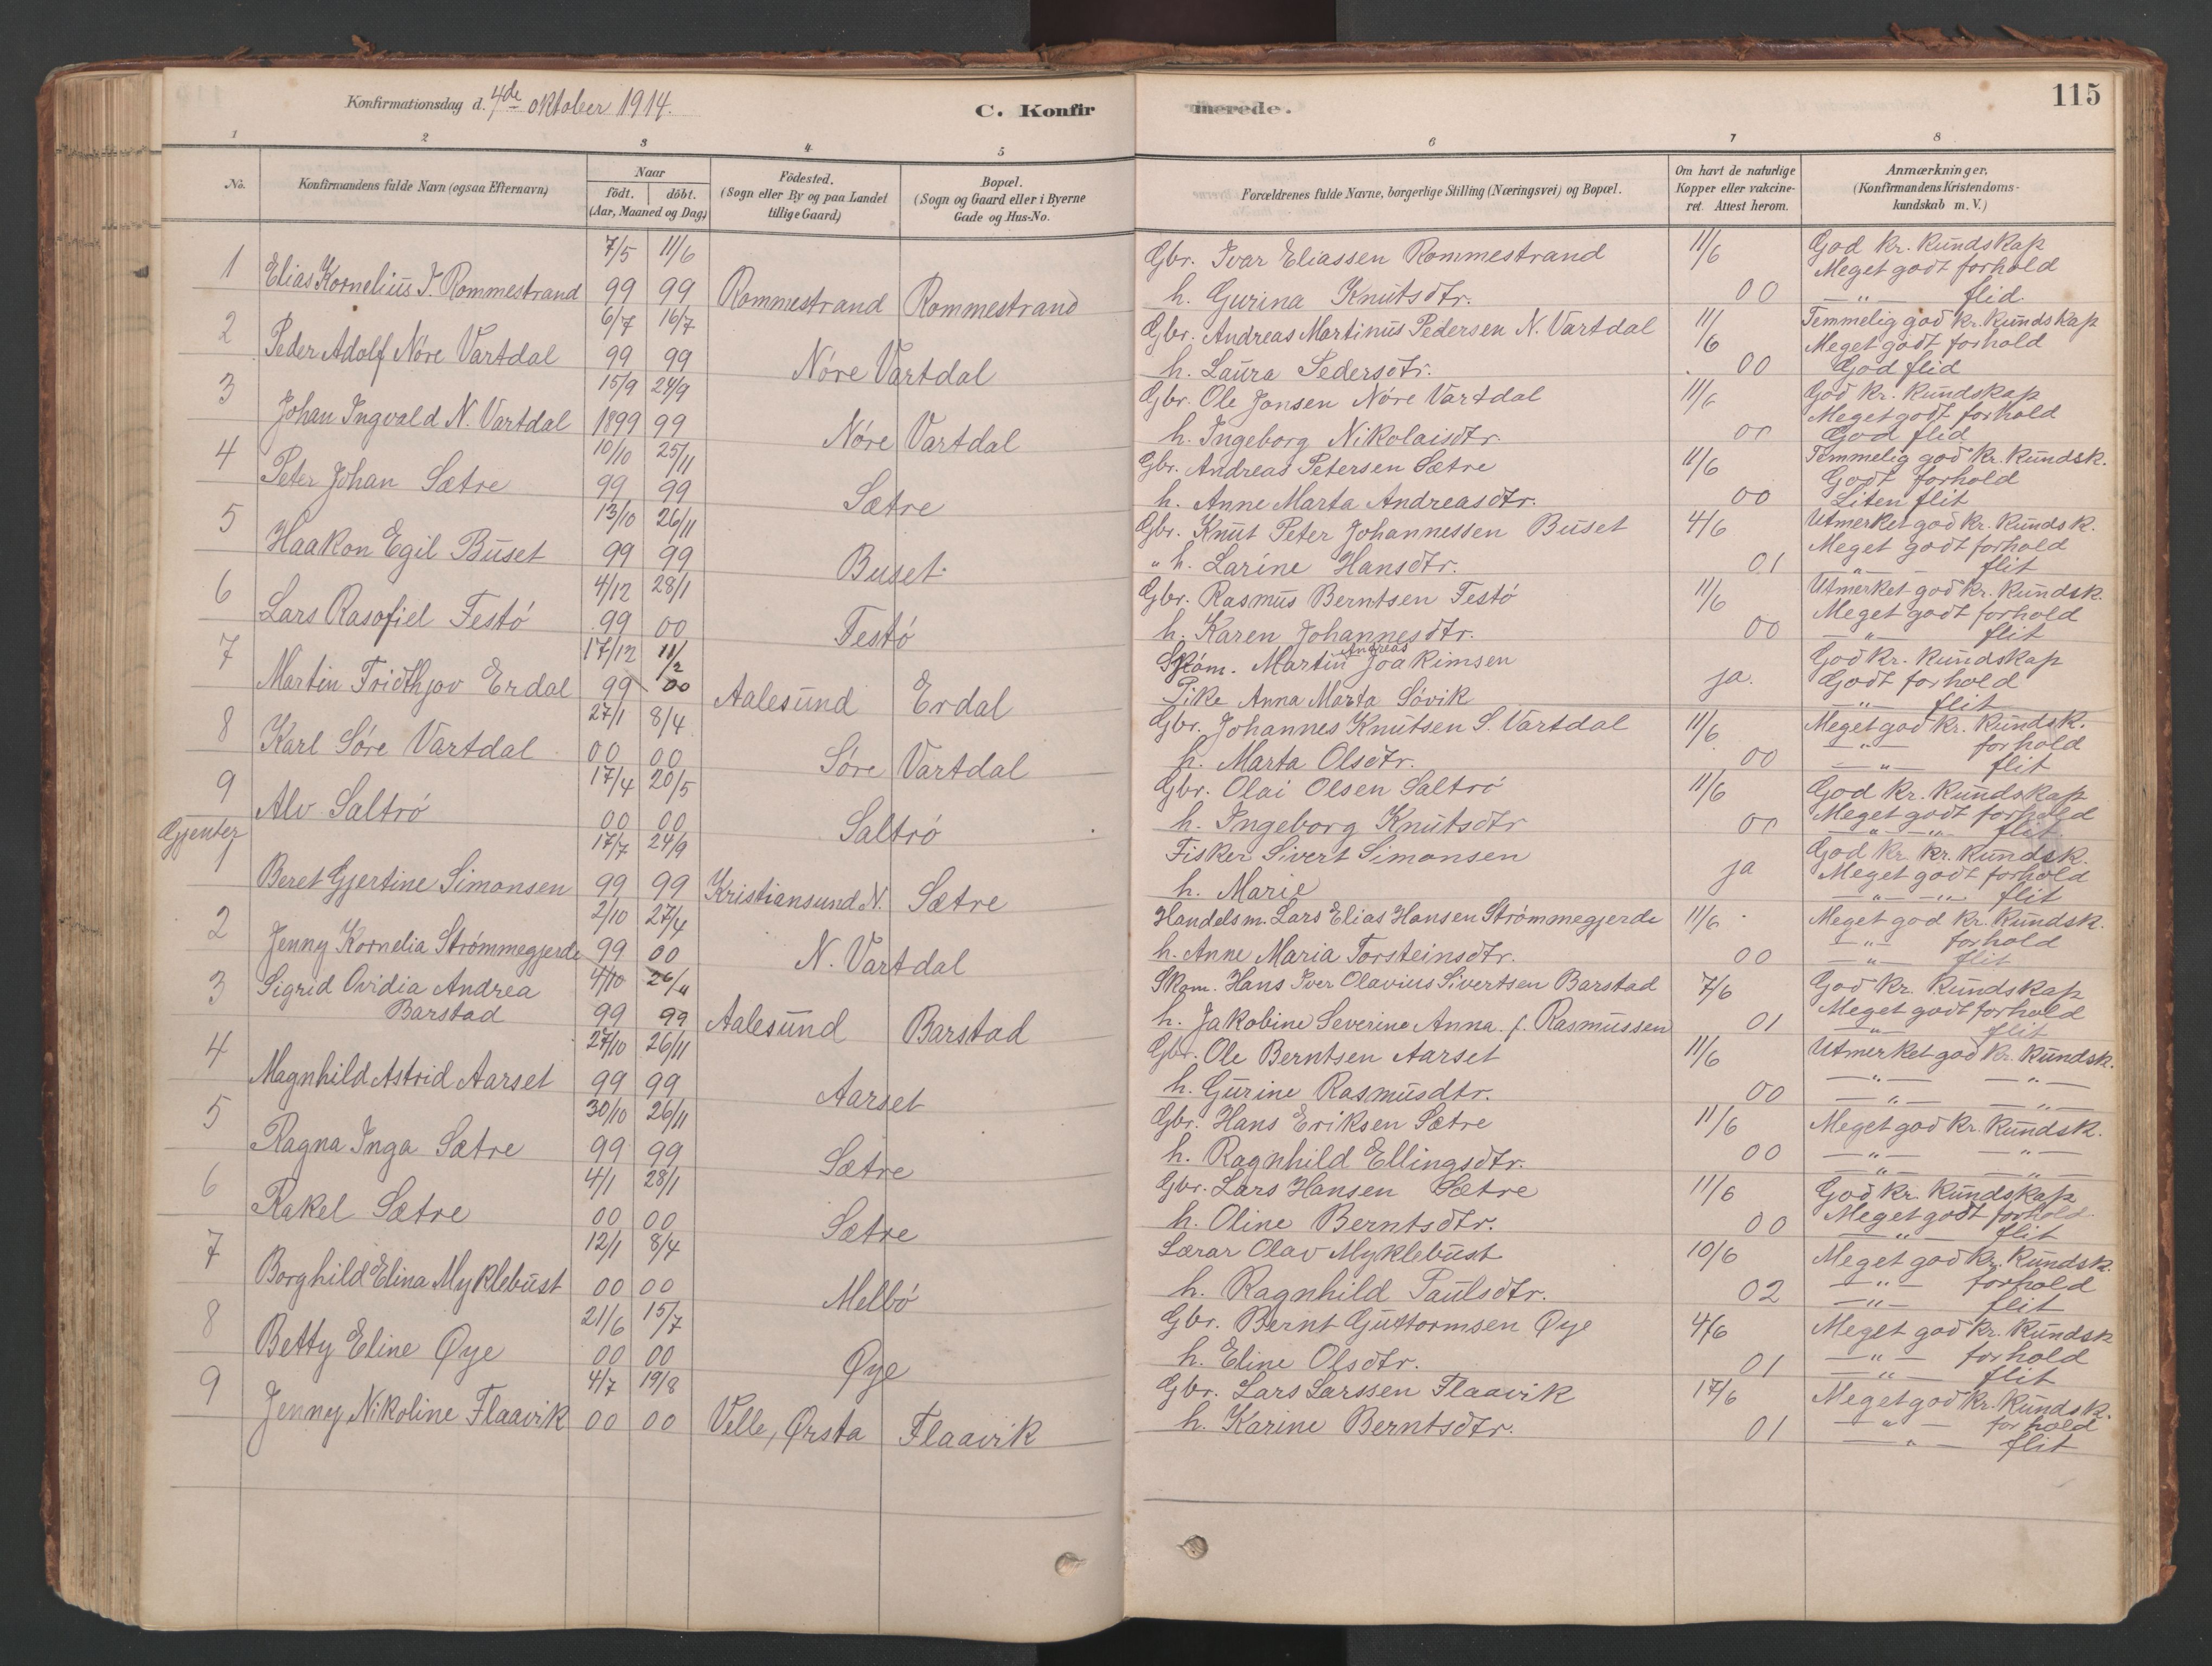 Konfirmationsdag d. 4de oktober 1914.
C. Konfir
merede.
115
1 2 3 4 5 6 7 8
No.
Konfirmandens fulde Navn (ogsaa Efternavn)
Naar
födt. döbt.
(Aar, Maaned og Dag)
Födested.
(Sogn eller By og paa Landet
tillige Gaard)
Bopæl.
(Sogn og Gaard eller i Byerne
Gade og Hus-No.
Forældrenes fulde Navne, borgerlige Stilling (Næringsvei) og Bopæl.
Om havt de naturlige
Kopper eller vakcine-
ret. Attest herom.
Anmærkninger,
(Konfirmandens Kristendoms-
kundskab m. V.)
7/5 11/6 Gbr. Ivar Eliassen Rommestrand 11/6 God kr. kundskap
Meget godt forhold
1 Elias Kornelius I. Rommestrand 99 99 Rommestrand Rommestrand h. Gurina Knutsdtr. 00 —"— flid.
6/7 16/7 Gbr. Andreas Martinus Pedersen N. Vartdal 11/6 Temmelig god kr. kundskap
Meget godt forhold
2 Peder Adolf Nóre Vartdal 99 99 Nóre Vartdal h. Laura Pedersdtr. 00 God flid
15/9 24/9 Gbr. Ole Jonsen Nóre Vartdal 11/6 God kr. kundskap
Meget godt forhold
3 Johan Ingvald N. Vartdal 1899 99 Nóre Vartdal h. Ingeborg Nikolaisdtr. 00 God flid
10/10 25/11 Gbr. Andreas Petersen Sætre 11/6 Temmelig god kr. kundsk.
Godt forhold
4 Peter Johan Sætre 99 99 Sætre h. Anne Marta Andreasdtr. 00 Liten flit
13/10 26/11 Gbr. Knut Peter Johannessen Buset 4/6 Utmerket god kr. kundsk.
Meget godt forhold
5 Haakon Egil Buset 99 99 Buset " h. Larine Hansdtr. 01 —"— flit
4/12 28/1 Gbr. Rasmus Berntsen Festó 11/6 Utmerket god kr. kundsk.
Meget godt forhold
6 Lars Rasofiel Festó 99 00 Festó h. Karen Johannesdtr. 00 —"— flit
17/12 11/2 Skóm. Martin Andreas Joakimsen God kr. kundskap
Godt forhold
7 Martin Fridthjov Erdal 99 00 Aalesund Erdal Pike Anna Marta Sóvik ja. —"— flit
27/1 8/4 Gbr. Johannes Knutsen S. Vartdal 11/6 Meget god kr. kundsk.
—"— forhold
8 Karl Sóre Vartdal 00 00 Sóre Vartdal h. Marta Olsdtr. 00 —"— flit
17/4 20/5 Gbr. Olai Olsen Saltró 11/6 God kr. kundskap
Meget godt forhold
9 Alv Saltró 00 00 Saltró h. Ingeborg Knutsdtr 00 —"—"— flit
Gjenter
17/7 24/9 Fisker Sivert Simonsen God kr. kr. kundsk.
Meget godt forhold
1 Beret Gjertine Simonsen 99 99 Kristiansund N. Sætre h. Marie ja —"—"— flit
2/10 27/4 Handelsm. Lars Elias Hansen Strómmegjerde 11/6 Meget god kr. kundsk.
—"— forhold
2 Jenny Kornelia Strómmegjerde 99 00 N. Vartdal h. Anne Maria Torsteinsdtr. 00 —"— flit
3 Sigrid Ovidia Andrea 4/10 26/11 Skom. Hans Iver Olavius Sivertsen Barstad 7/6 God kr. kundskap
Meget godt forhold
Barstad 99 99 Aalesund Barstad h. Jakobine Severine Anna f. Rasmussen 01 —"— flit
27/10 26/11 Gbr. Ole Berntsen Aarset 11/6 Utmerket god kr. kundsk.
—"— —"—
4 Magnhild Astrid Aarset 99 99 Aarset h. Gurine Rasmusdtr. 00 —"— —"—
30/10 26/11 Gbr. Hans Eriksen Sætre 11/6 Meget god kr. kundsk.
—"— —"—
5 Ragna Inga Sætre 99 99 Sætre h. Ragnhild Ellingsdtr. 00 —"— —"—
4/1 28/1 Gbr. Lars Hansen Sætre 11/6 God kr. kundskap
Meget godt forhold
6 Rakel Sætre 00 00 Sætre h. Oline Berntsdtr. 00 —"— flit
12/1 8/4 Lærar Olav Myklebust 10/6 Meget god kr. kundsk.
—"— forhold
7 Borghild Elina Myklebust 00 00 Melbó h. Ragnhild Paulsdtr. 02 —"— flit
21/6 15/7 Gbr. Bernt Guttormsen Øye 4/6 Meget god kr. kundsk
—"— forhold
8 Betty Eline Øye 00 00 Øye h. Eline Olsdtr. 01 —"— flit
4/7 19/8 Gbr. Lars Larssen Flaavik 17/6 Meget god kr. kundsk.
—"— forhold
9 Jenney Nikoline Flaavik 00 00 Velle, Ørsta Flaavik h. Karine Berntsdtr. 01 —"— flit